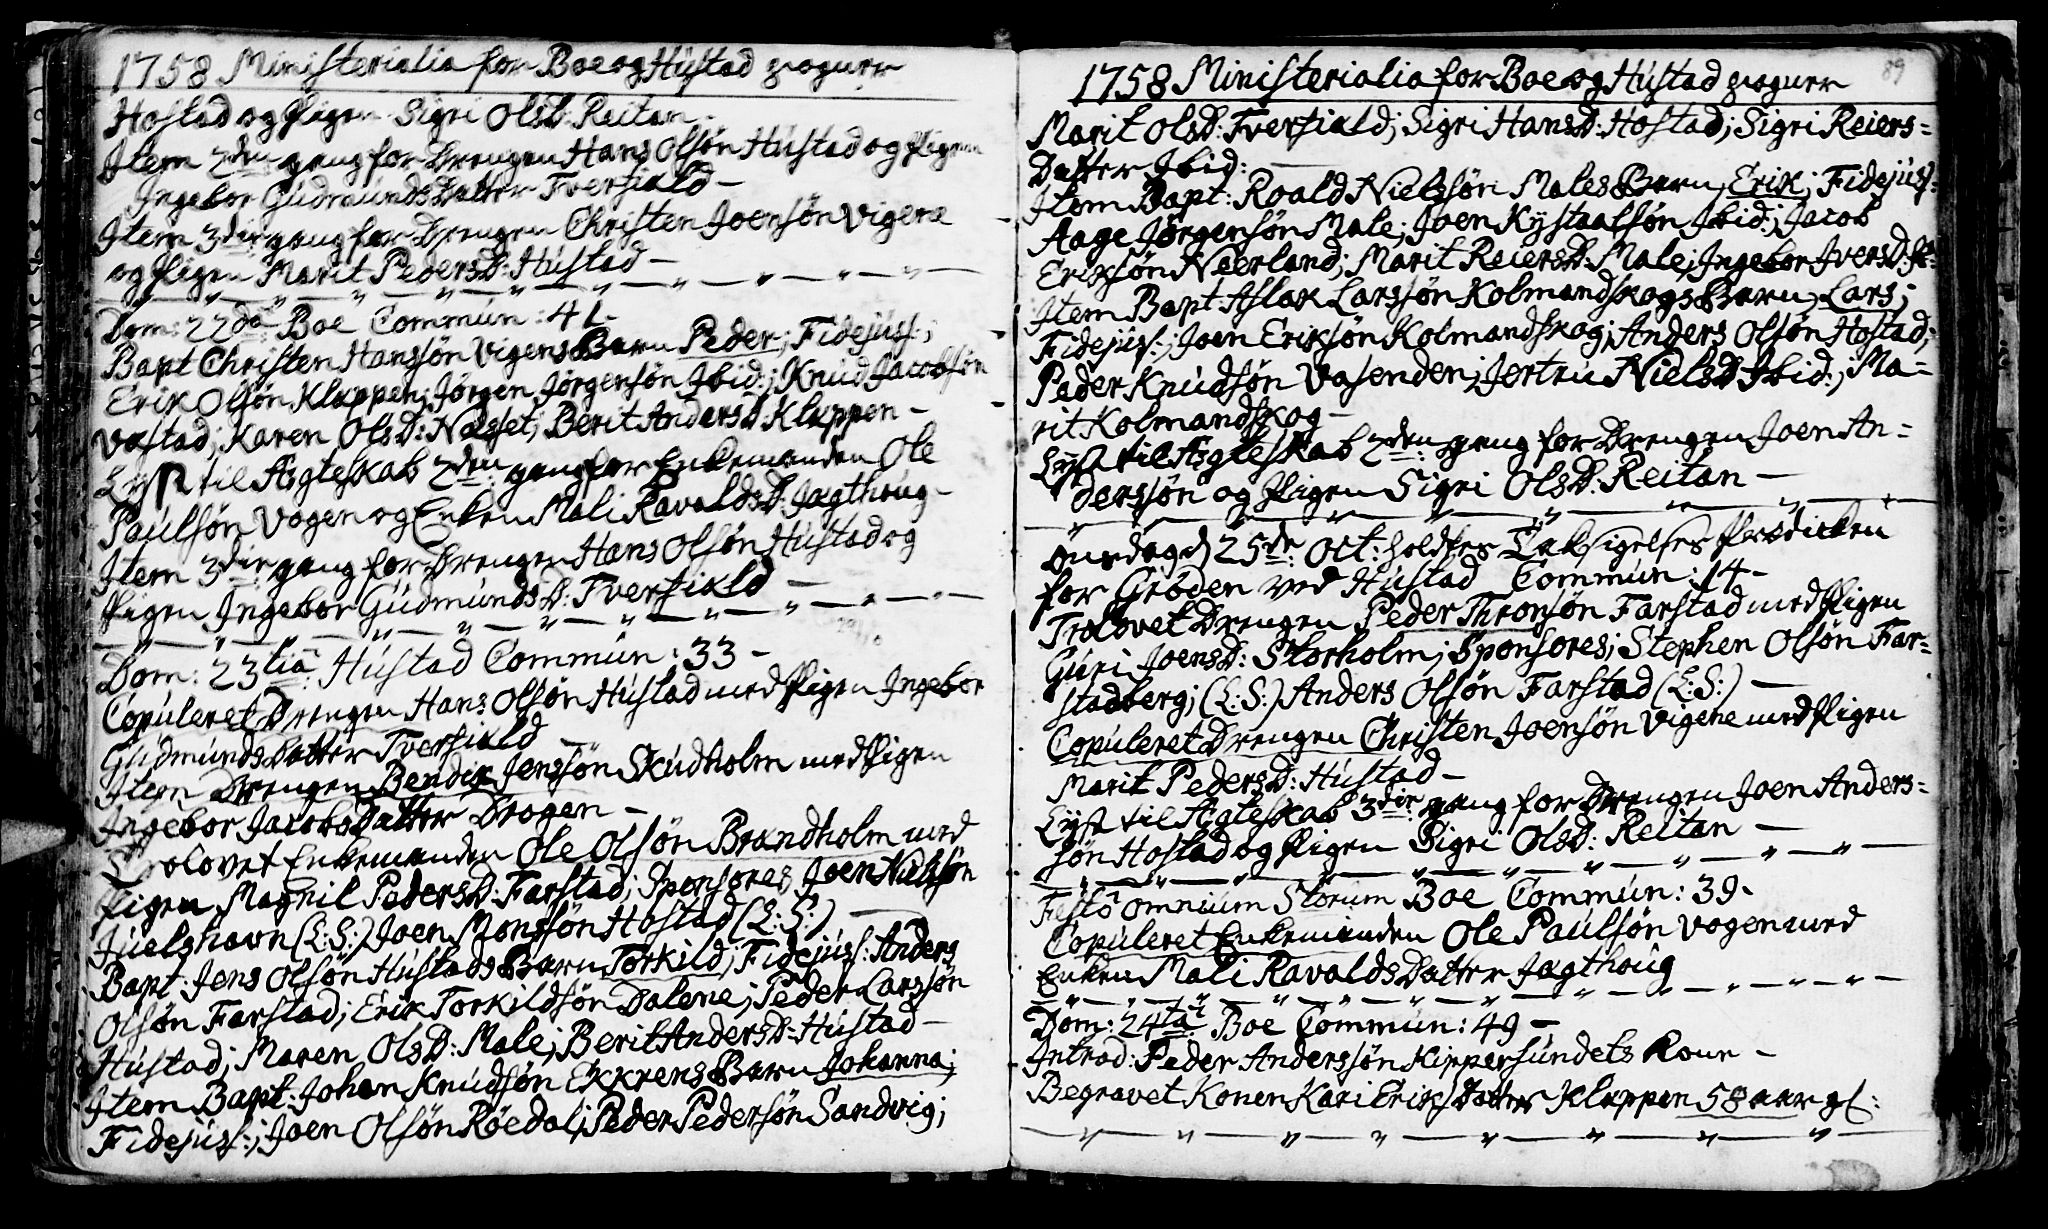 1758 Ministerialia for Boe og Hústad
Hostad og Pigen Sigri OlsD: Reitan
Item 2den gang for Drengen Hans Olsøn Hústad og Pigen
Ingebor Gúdmúnds Datter Tverfiæld –
Item 3die gang for Drengen Christen Joensøn Vigene
og Pigen Marit PedersD: Hústad –
Dom: 22da Boe Commún: 41.
Bapt Christen Hanssøn Vigens Barn Peder; Fidejúss:;
Erik Olsøn Kleppen; Jørgen Jørgensøn Ibid:; Knúd Jacobsøn
Vastad; Karen OlsD: Næsset; Berit AndersD: Kleppen –
Lyst til Ægteskab 2den gang for Enkemanden Ole
Paúlsøn Vogen og Enken Mali RavaldsD: Jagthoúg –
Item 3die gang for Drengen Hans Olsøn Hústad og
Pigen Ingebor GúdmúndsD: Tverfiæld –
Dom: 23tia Hústad Commún: 33 –
Copúleret Drengen Hans Olsøn Hústad med Pigen Ingebor
Gúdmúnds Datter Tverfiæld –
Item Drengen Bendix Jenssøn Skúdholm med Pigen
Ingebor Jacobs Datter Drogen –
Trolovet Enkemanden Ole Olsøn Brandholm med
Pigen Magnil PedersD: Farstad; Sponsores Joen Nielssøn
Júelshavn (L:S:) Joen Monssøn Hostad (L:S:) –
Bapt: Jens Olsøn Hústads Barn Torkild; Fidejúss: Anders
Olsøn Farstad; Erik Torkildsøn Dalene; Peder Larssøn
Hústad; Maren OlsD: Male; Berit AndersD: Hústad –
Item Bapt: Johan Knúdsøn Ekkrens Barn Johanna;
Fidejúss:; Joen Olsøn Røedal; Peder Pedersøn Sandvig;
89
1758 Ministerialia for Boe og Hústad
Marit OlsD: Tverfiæld; Sigri HansD: Hostad; Sigri Reiers=
Datter Ibid: –
Item Bapt: Roald Nielssøn Males Barn Erik; Fidejúss:
Aage Jørgensøn Male; Joen Kystaalsøn Ibid:; Jacob
Eriksøn Neerland; Marit ReiersD: Male; Ingebor IversD:
Item Bapt Aslak Larssøn Kolmandskogs Barn Lars;
Fidejúss:; Joen Eriksøn Kolmandskog; Anders Olsøn Hostad;
Peder Knúdsøn Vasenden; Jertrú NielsD: Ibid:; Ma=
rit Kolmandskog –
Lyst til Ægteskab 2den gang for Drengen Joen An=
derssøn og Pigen Sigri OlsD: Reitan –
Onsdag d 25de Oct: holdtes Taksigelses Prædicken
for Grøden ved Hústad Commún: 14 –
Trolovet Drengen Peder Thronsøn Farstad med Pigen
Gúri JoensD: Storholm; Sponsores; Stephen Olsøn Far=
stadberg; (L:S:) Anders Olsøn Farstad (L:S:) –
Copúleret Drengen Christen Joensøn Vigene med Pigen
Marit PedersD: Hústad –
Lyst til Ægteskab 3die gang for Drengen Joen Anders=
søn Hostad og Pigen Sigri OlsD: Reitan –
Festo omnium Storum Boe Commún: 39.
Copúleret Enkemanden Ole Paúlsøn Vogen med
Enken Mali Ravalds Datter Jagthoúg
Dom: 24ta Boe Commún: 49 –
Introd: Peder Anderssøn Kippersúndets Kone –
Begravet Konen Kari Eriks Datter Kleppen 58 aar gl: